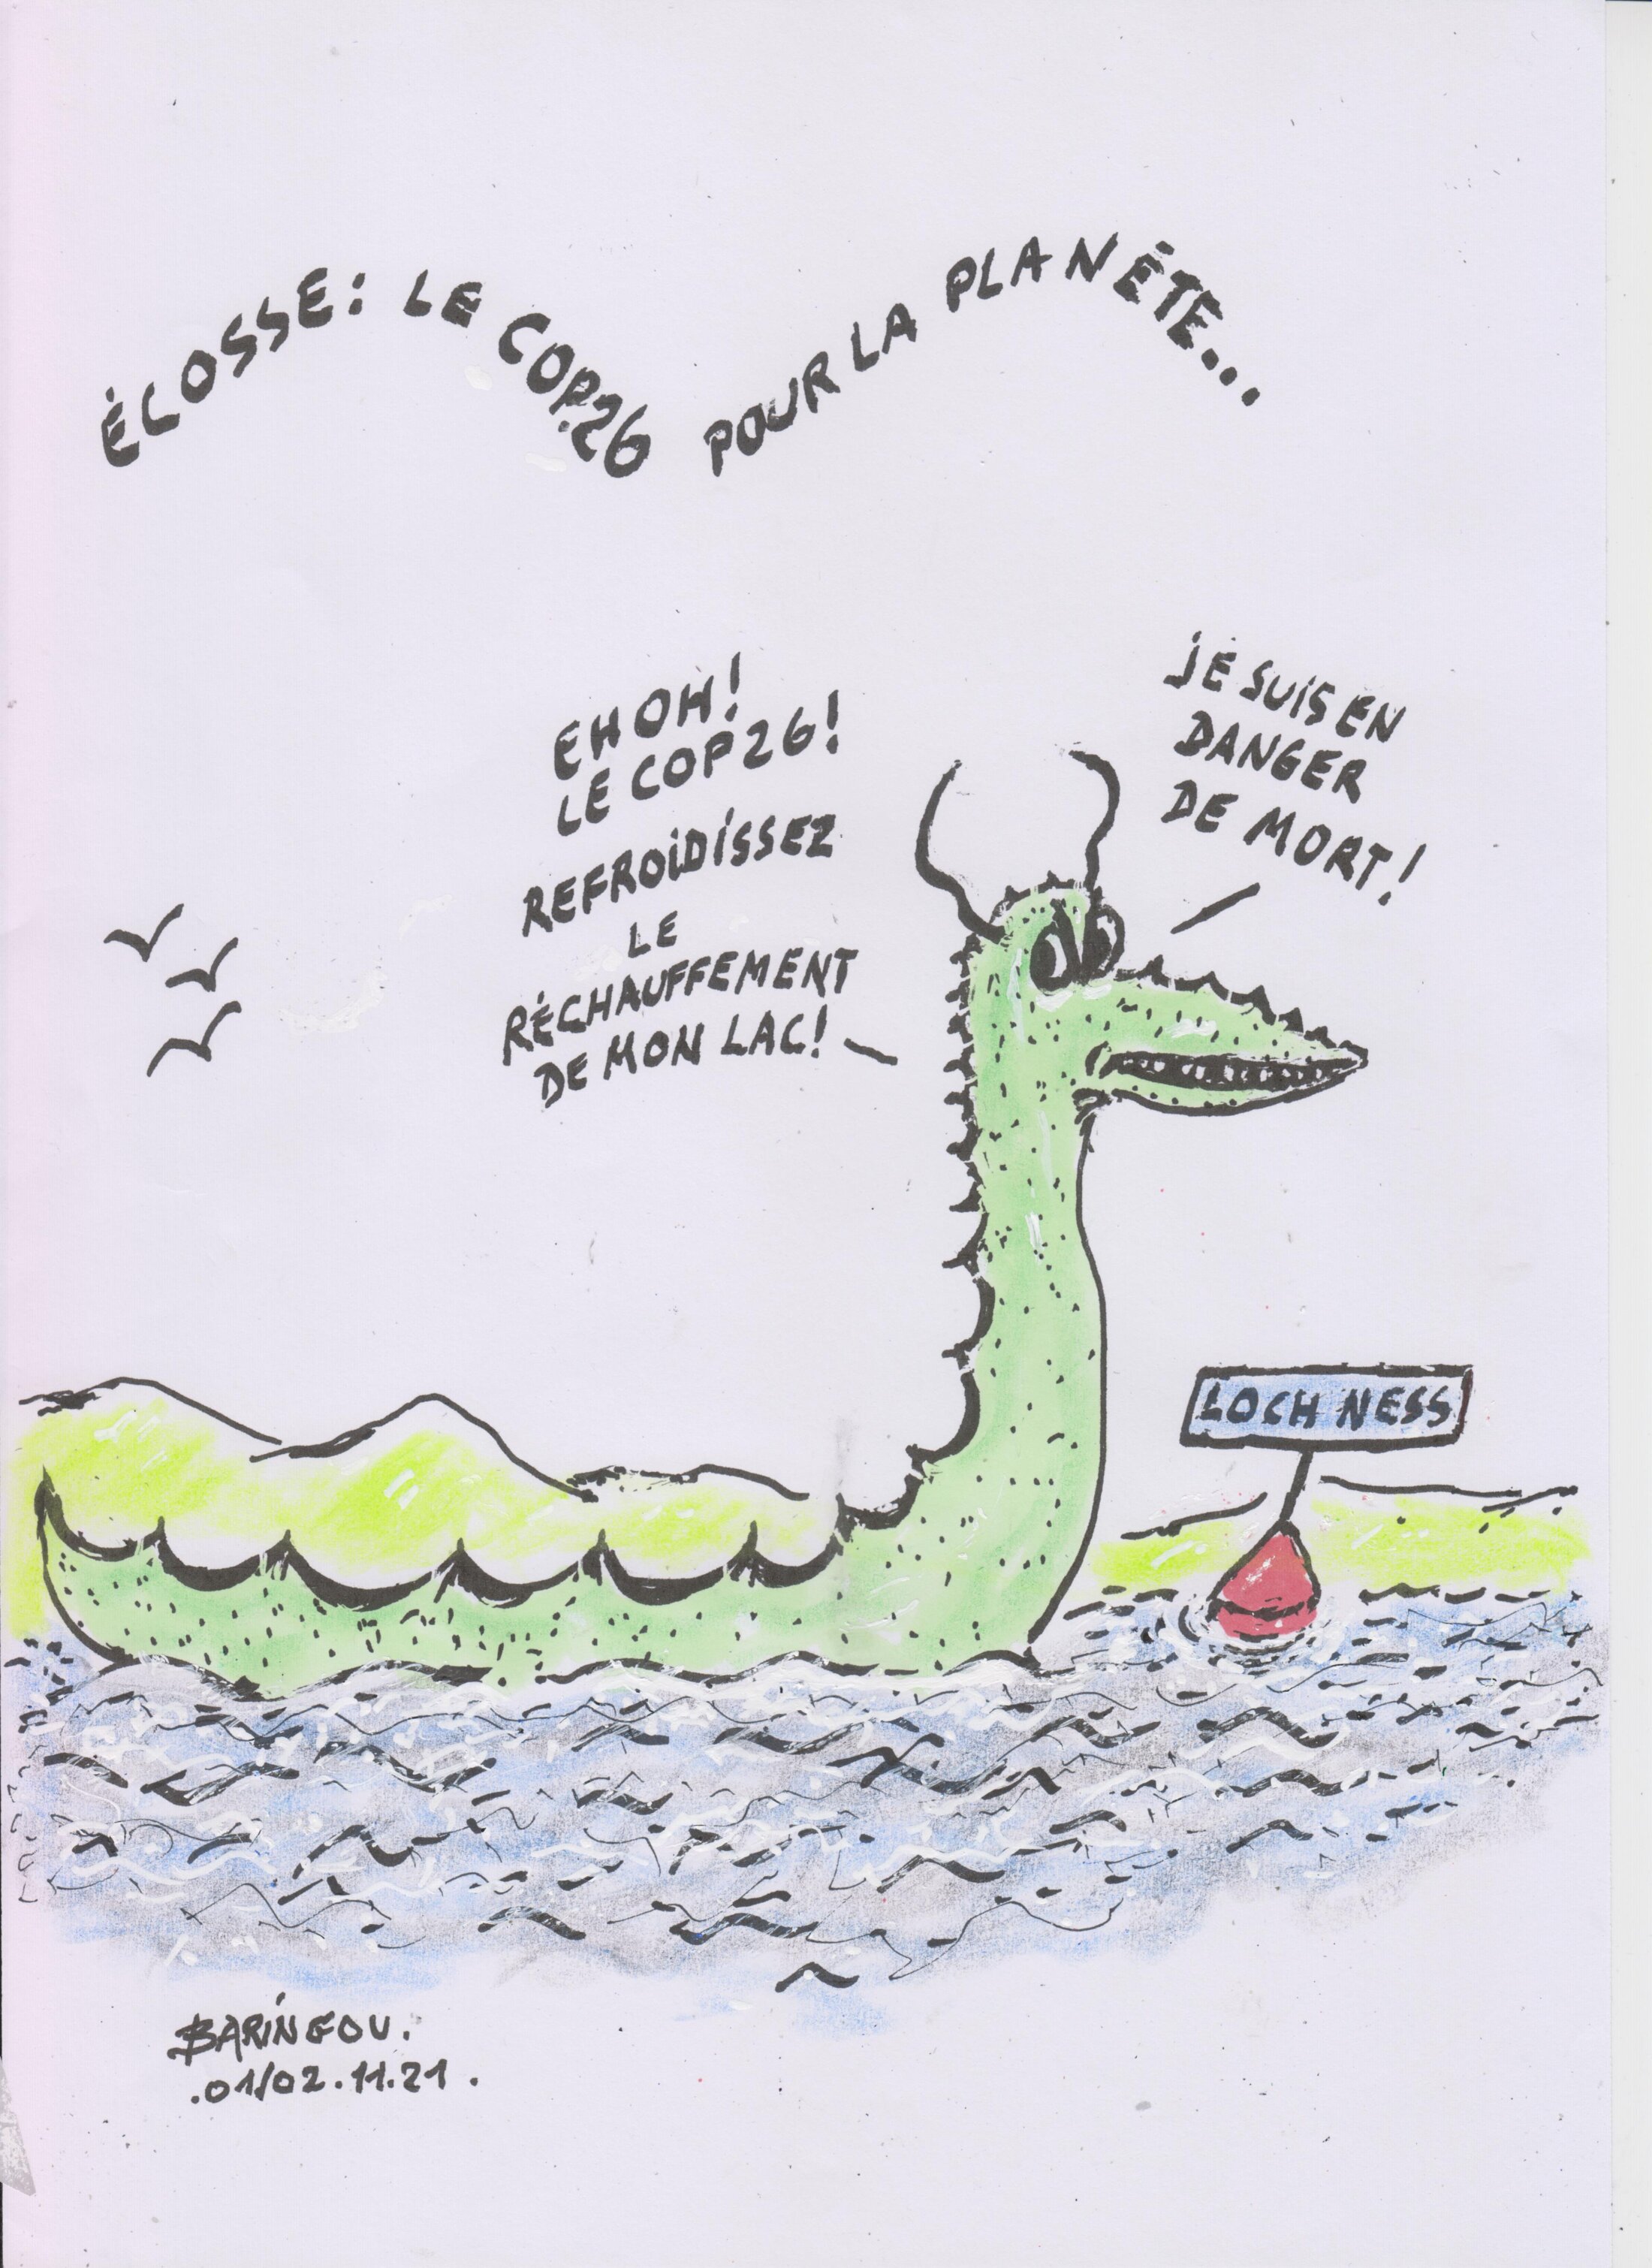 ÉCOSSE: LE COP26 POUR LA PLANÈTE...
EHOH!
LE COP26!
REFROIDISSEZ
LE
RÉCHAUFFEMENT
DE MON LAC!
JE SUIS EN
DANGER
DE MORT!
LOCH NESS
BARINGOU.
.01/02.11.21.